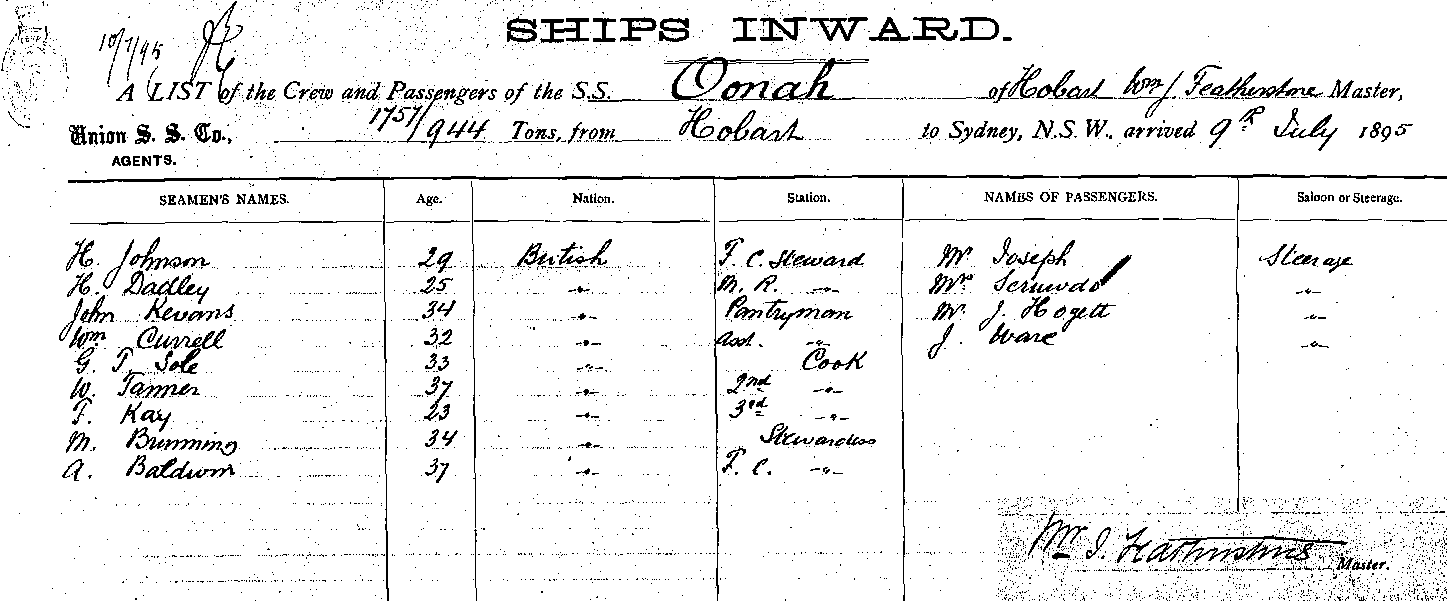 SHIPS INWARD.
10/7/95
A LIST of the Crew and Passengers of the S.S. Oonah of Hobart Wm J Featherstone Master,
Union S. S. Co., 1757/944 Tons, from Hobart to Sydney, N.S.W., arrived 9th July 1895
AGENTS.
SEAMEN'S NAMES. Age. Nation. Station. NAMES OF PASSENGERS. Saloon or Steerage.
H. Johnson 29 British F. C. Steward Mr Joseph Steerage
H. Dadley 25 -"- M. R. -"- Mrs -"-
John Kevans 34 -"- Pantryman Mr. J. Hogett -"-
Wm Currell 32 -"- Asst. -"- J. Ware -"-
G. T. Sole 33 -"- Cook
W. Tanner 37 -"- 2nd -"-
F. Kay 23 -"- 3rd -"-
M. Brunning 34 -"- Stewardess
A. Baldwin 37 -"- F. C. -"-
Wm J. Featherstone
Master.